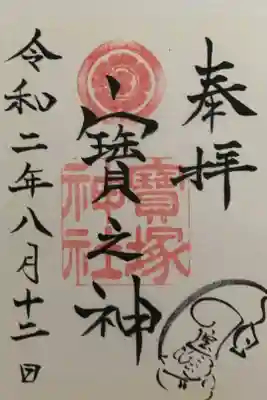 奉拝
寳之神
寳塚
神社
令和二年八月十二日